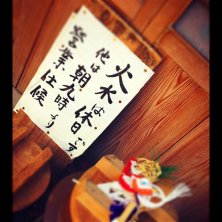 火木は休日です
他は朝九時より
営業仕候